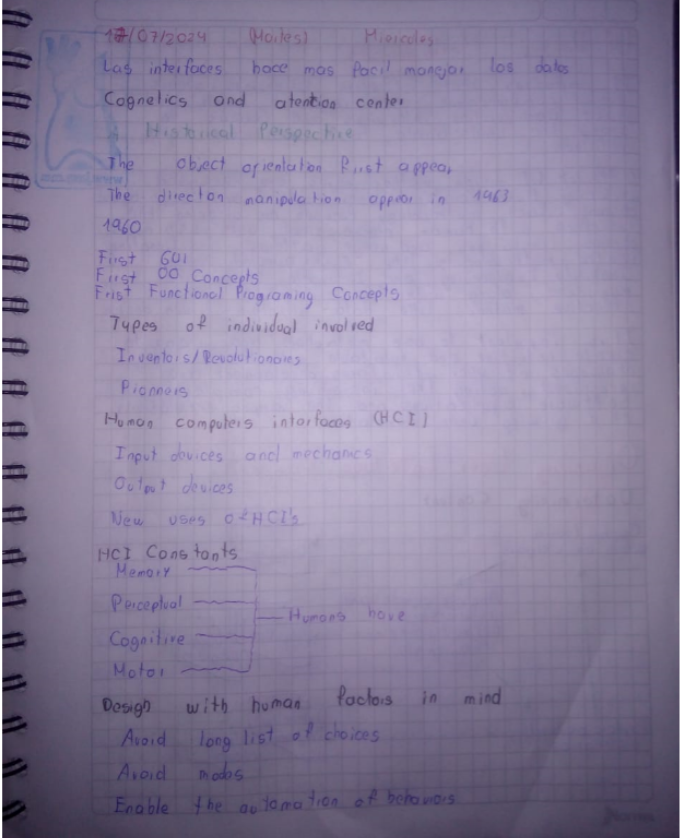 17/07/2024 (Martes) Miercoles
Las interfaces hace mas facil manejar los datos
Cognetics and atention center
Historical Perspective
The object orientation First appear
The direction manipulation appear in 1963
1960
First GUI
First OO Concepts
Frist Functional Programing Concepts
Types of individual involved
Inventors/Revolutionaries
Pionners
Human computers interfaces (HCI)
Input devices and mechanics
Output devices
New uses of HCI's
HCI Constants
Memory
Perceptual
Humans have
Cognitive
Motor
Design with human factors in mind
Avoid long list of choices
Avoid modes
Enable the automation of behaviors
Norma